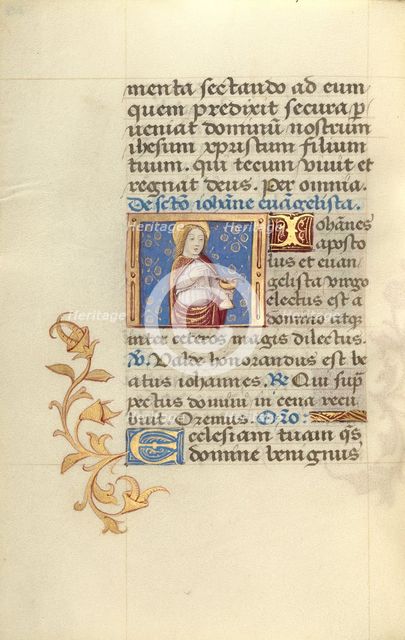 menta sectando ad eum
quem predixit secura p
ueniat dominū nostrum
ihesum xpristum filium
tuum. qui tecum viuit et
regnat deus. Per omnia.
De scto iohāne euāgelista.
Iohānes
aposto
lus et euan
gelista virgo
electus est a
domino atqz
inter ceteros magis dilectus.
V. Valde honorandus est be
atus iohannes. Re Qui sup
pectus domini in cena recu
buit Oremus. Oro:
Ecclesiam tuam qs
domine benignus
heritage
Heritage